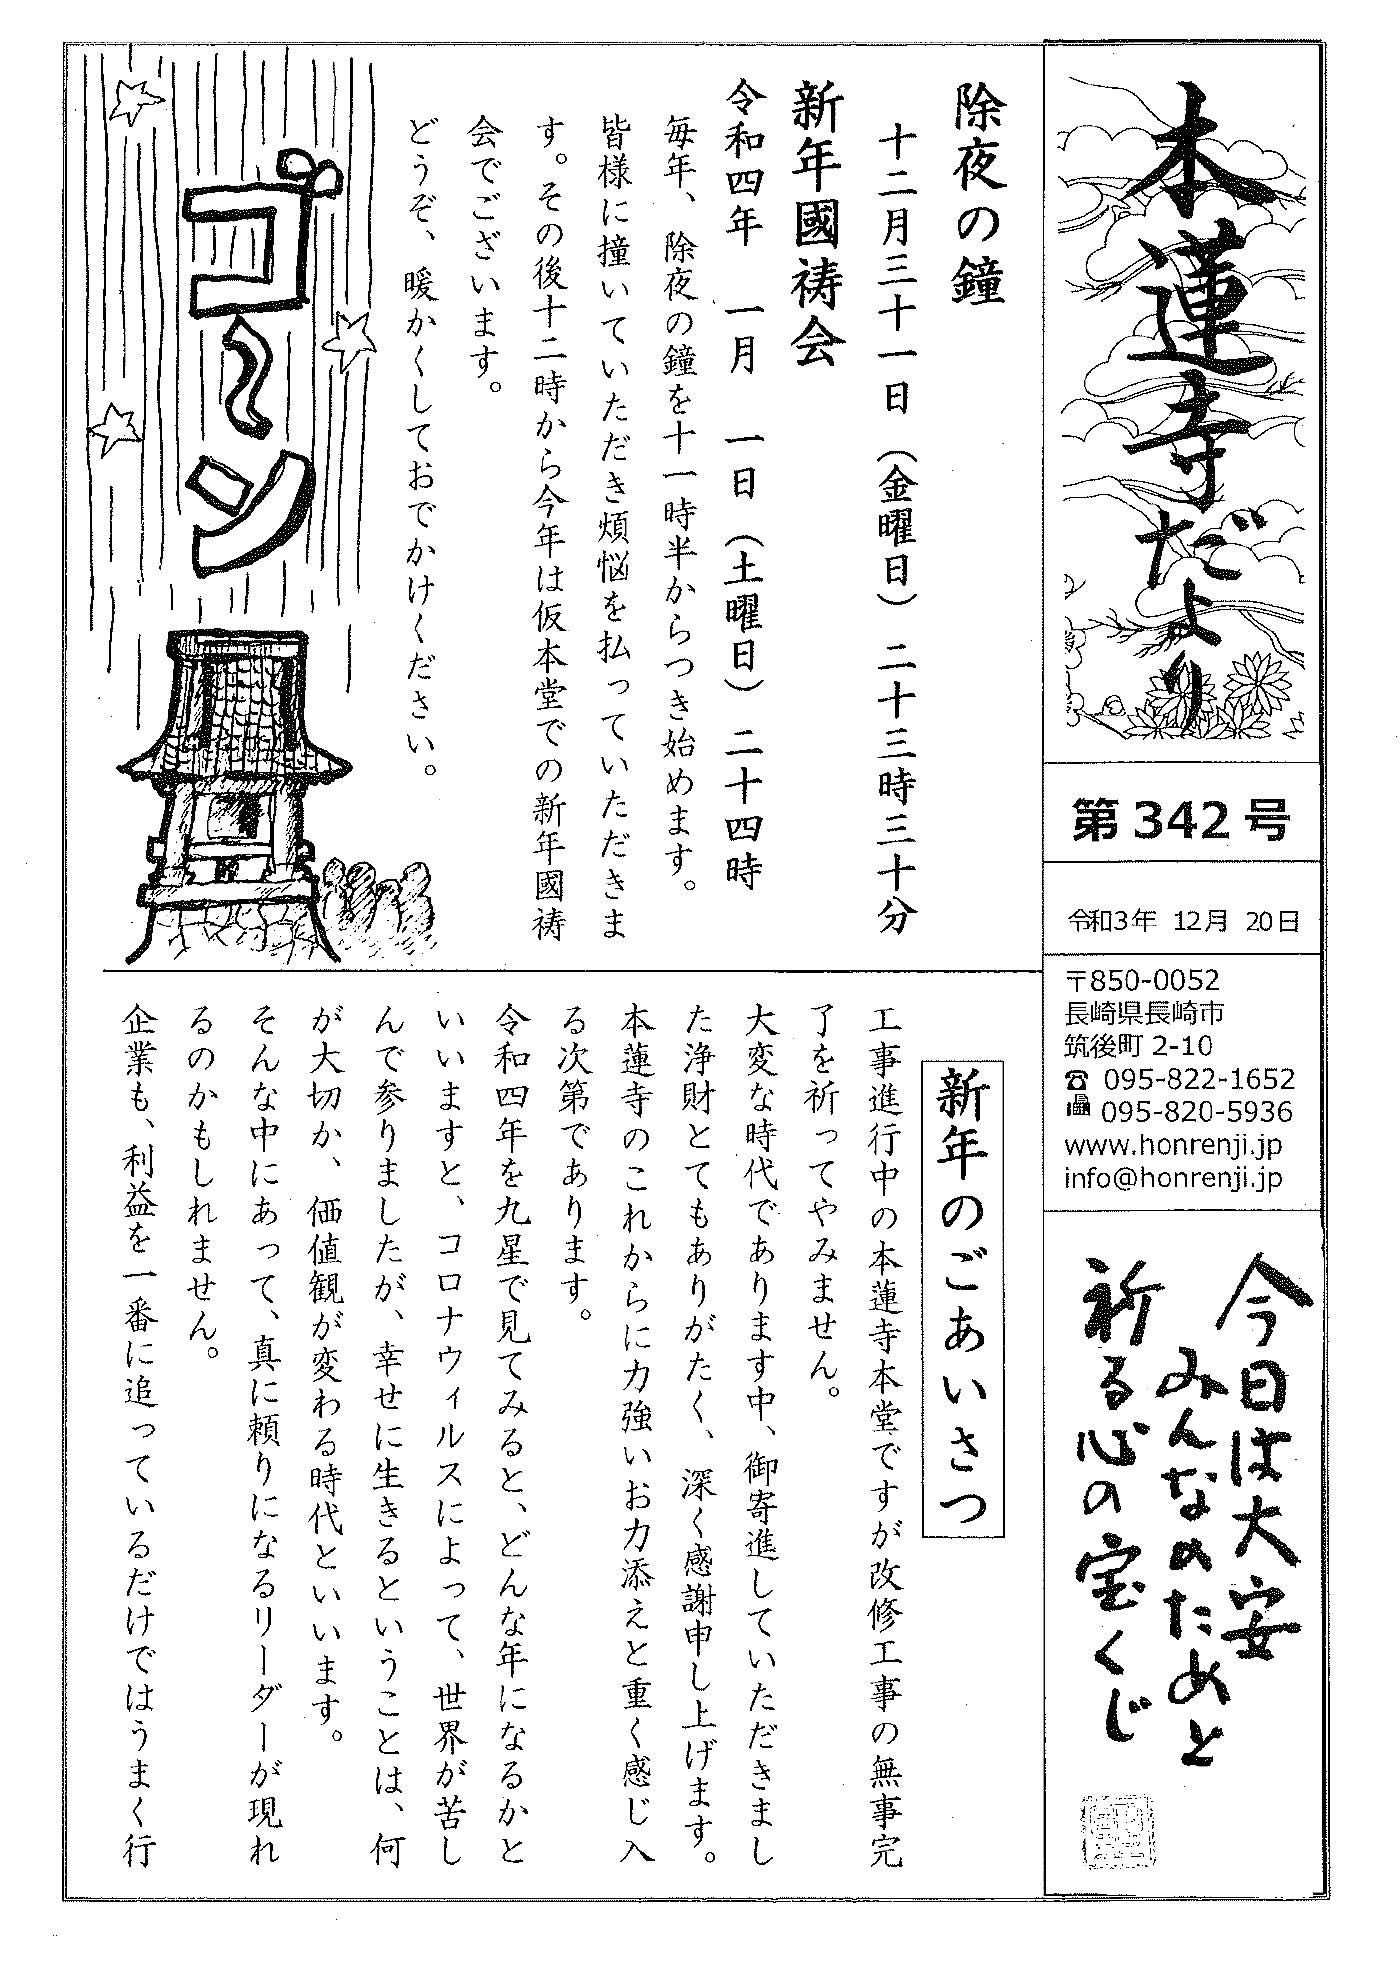 本蓮寺だより
第342号
令和3年 12月 20日
〒850-0052
長崎県長崎市
筑後町 2-10
☎ 095-822-1652
095-820-5936
www.honrenji.jp
info@honrenji.jp
今日は大安
みんなのためと
祈る心の宝くじ
除夜の鐘
十二月三十一日（金曜日）二十三時三十分
新年國祷会
令和四年 一月 一日（土曜日）二十四時
毎年、除夜の鐘を十一時半からつき始めます。
皆様に撞いていただき煩悩を払っていただきま
す。その後十二時から今年は仮本堂での新年國祷
会でございます。
どうぞ、暖かくしておでかけください。
ゴ〜ン
新年のごあいさつ
工事進行中の本蓮寺本堂ですが改修工事の無事完
了を祈ってやみません。
大変な時代であります中、御寄進していただきまし
た浄財とてもありがたく、深く感謝申し上げます。
本蓮寺のこれからに力強いお力添えと重く感じ入
る次第であります。
令和四年を九星で見てみると、どんな年になるかと
いいますと、コロナウィルスによって、世界が苦し
んで参りましたが、幸せに生きるということは、何
が大切か、価値観が変わる時代といいます。
そんな中にあって、真に頼りになるリーダーが現れ
るのかもしれません。
企業も、利益を一番に追っているだけではうまく行